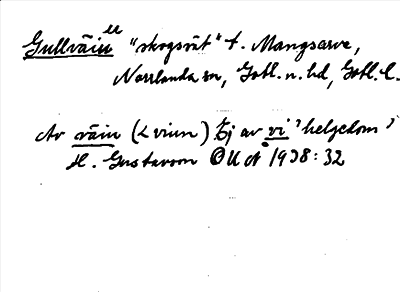 Gullväin ll "skogsröt" t. Mangsarve,
Norrlanda sn, Gotl. n. hd, Gotl. l.
Av väin (< vinn) Ej av vi 'helgedom'
H. Gustavson OUÅ 1938:32